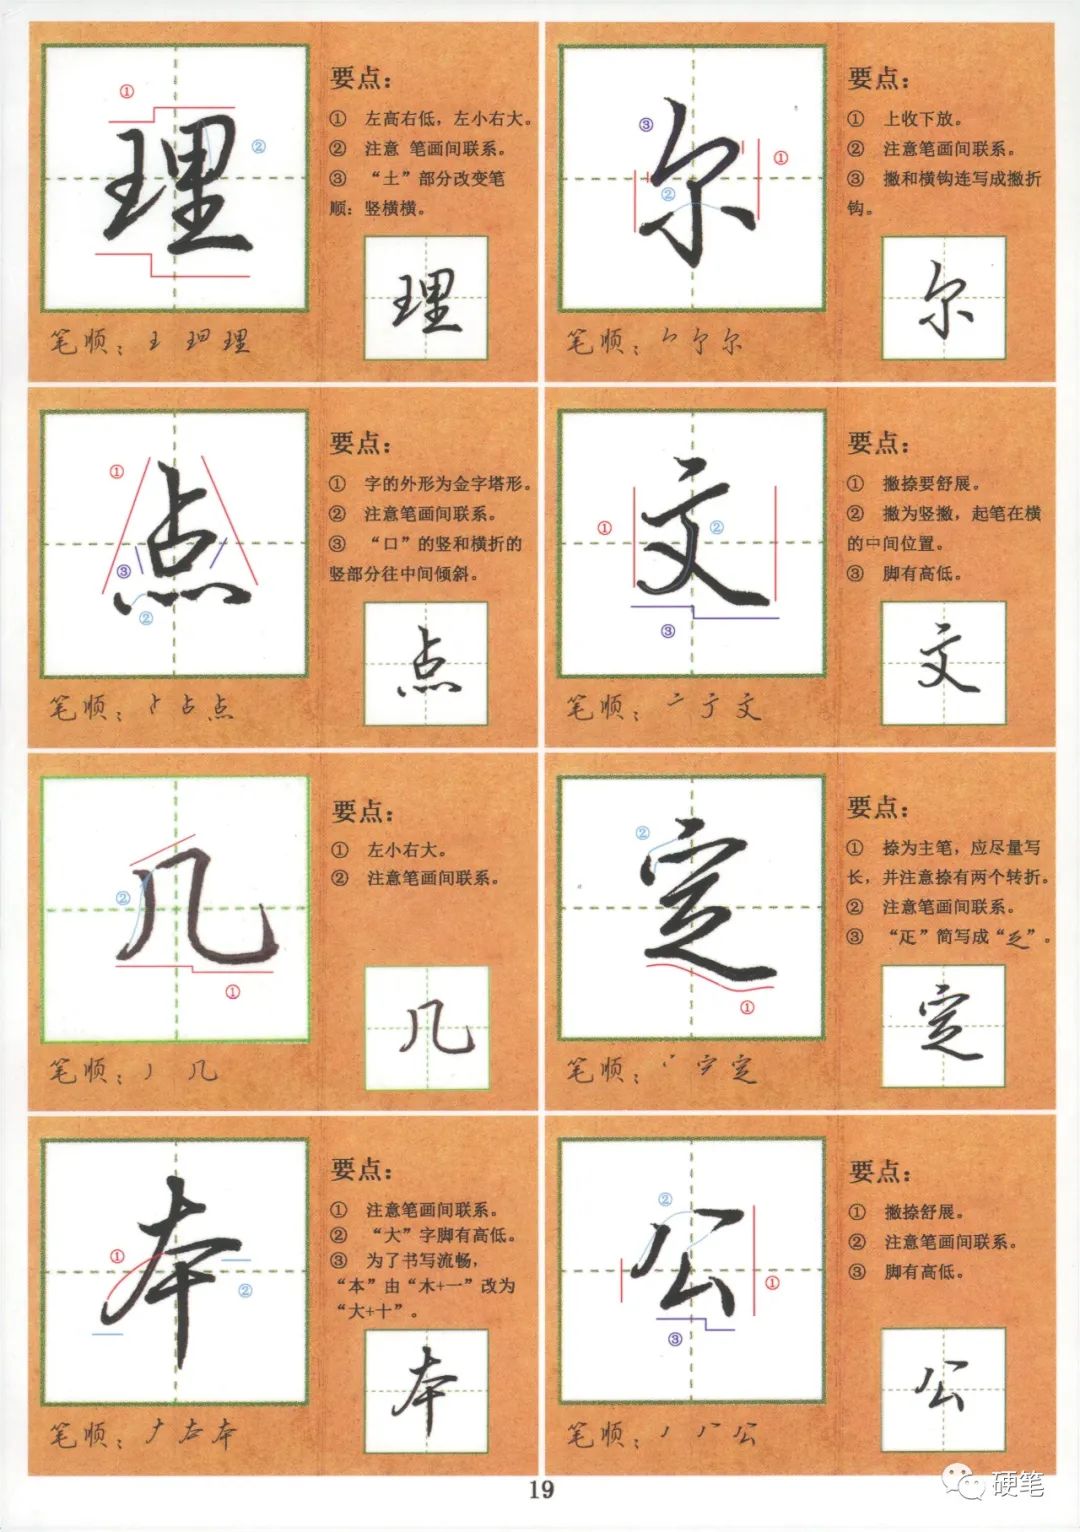 理
要点：
① 左高右低，左小右大。
② 注意 笔画间联系。
③ “土”部分改变笔
顺：竖横横。
理
笔顺：王 理 理
尔
要点：
① 上收下放。
② 注意笔画间联系。
③ 撇和横钩连写成撇折
钩。
尔
笔顺：尔
点
要点：
① 字的外形为金字塔形。
② 注意笔画间联系。
③ “口”的竖和横折的
竖部分往中间倾斜。
点
笔顺：⺊ 占 点
文
要点：
① 撇捺要舒展。
② 撇为竖撇，起笔在横
的中间位置。
③ 脚有高低。
文
笔顺：亠 文
几
要点：
① 左小右大。
② 注意笔画间联系。
几
笔顺：丿 几
定
要点：
① 捺为主笔，应尽量写
长，并注意捺有两个转折。
② 注意笔画间联系。
③ “疋”简写成“”。
定
笔顺：定
本
要点：
① 注意笔画间联系。
② “大”字脚有高低。
③ 为了书写流畅，
“本”由“木+一”改为
“大+十”。
本
笔顺：本
公
要点：
① 撇捺舒展。
② 注意笔画间联系。
③ 脚有高低。
公
笔顺：丿 八 公
19
硬笔